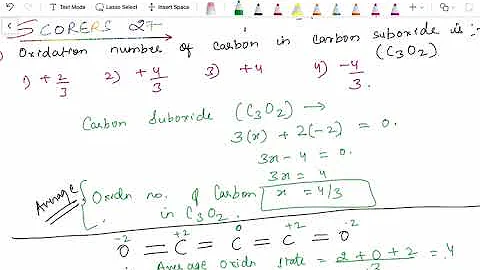 Text Mode
Lasso Select
Insert Space
SCORERS 27
Oxidation number of carbon in carbon suboxide is :-
(C3O2)
1) +2/3 2) +4/3 3) +4 4) -4/3.
Carbon Suboxide (C3O2) →
3(x) + 2(-2) = 0.
3x - 4 = 0.
3x = 4
x = 4/3
Average
Oxidn no. of Carbon
in C3O2.
-2 +2 0 +2 -2
O = C = C = C = O
Average Oxidn state = 2 + 0 + 2 = 4